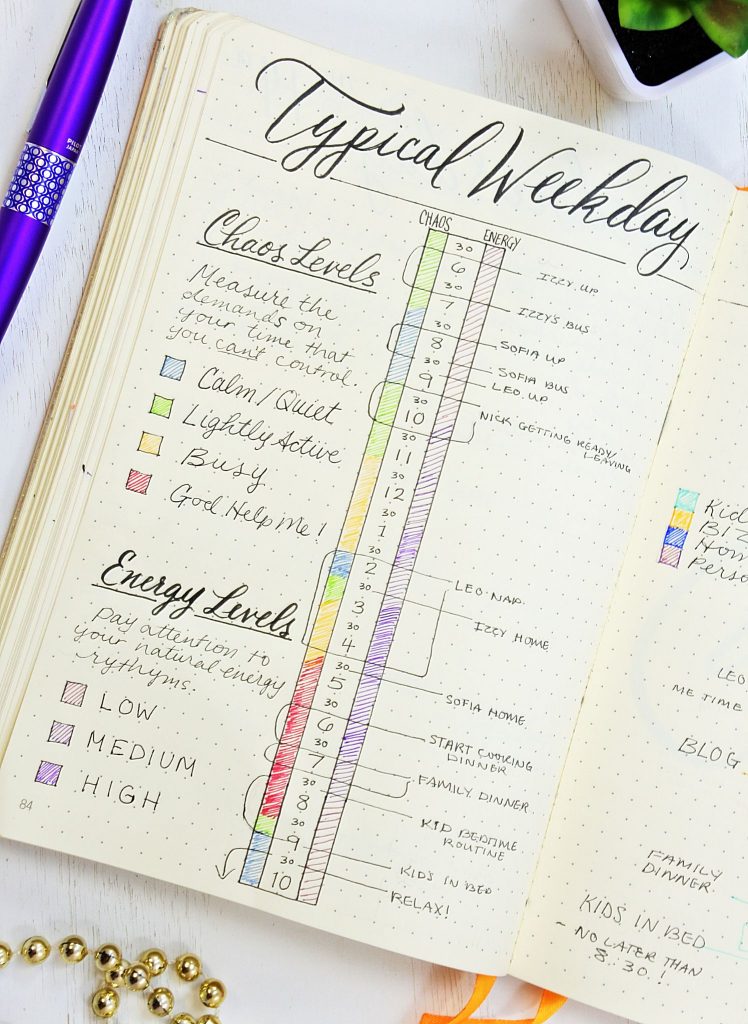 PILOT
JAPAN
Typical Weekday
CHAOS
ENERGY
Chaos Levels
Measure the
demands on
your time that
you can't control.
Calm/Quiet
Lightly Active
Busy
God Help Me!
Energy Levels
Pay attention to
your natural energy
rythyms.
LOW
MEDIUM
HIGH
84
30
6
30
7
30
8
30
9
30
10
30
11
30
12
30
1
30
2
30
3
30
4
30
5
30
6
30
7
30
8
30
9
30
10
IZZY UP
IZZY'S BUS
SOFIA UP
SOFIA BUS
LEO UP
NICK GETTING READY/
LEAVING
LEO NAP
IZZY HOME
SOFIA HOME
START COOKING
DINNER
FAMILY DINNER
KID BEDTIME
ROUTINE
KIDS IN BED
RELAX!
Kid
BIZ
Hom
Perso
LEO
ME TIME
BLOG
FAMILY
DINNER
KIDS IN BED
- NO LATER THAN
8:30!